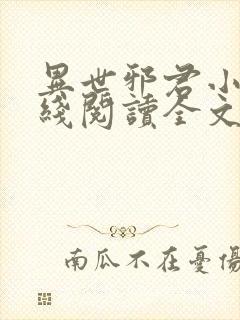 異世邪君小
綫閱讀全文
南瓜不在憂傷